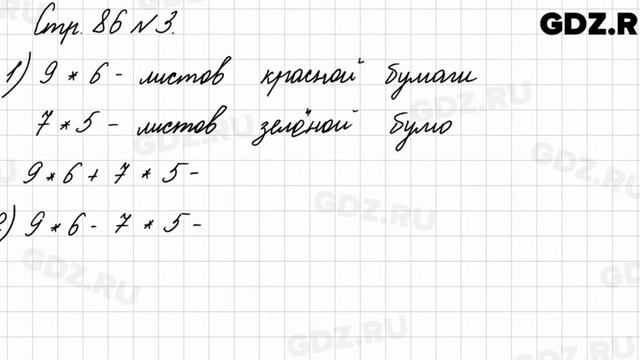 Стр. 86 № 3.
GDZ.R
1) 9 * 6 - листов красной бумаги
7 * 5 - листов зелёной бумо
9 * 6 + 7 * 5 -
2) 9 * 6 - 7 * 5 -
GDZ.RU
GDZ.RU
GDZ.RU
GDZ.RU
GDZ.RU
GDZ.RU